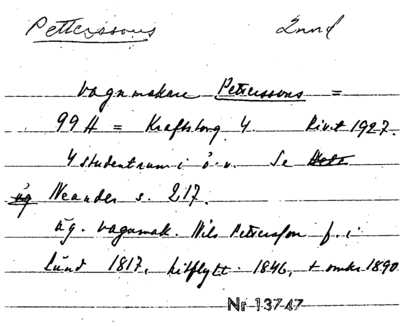 Petterssons Lund
Vagnmakare Petterssons =
99 H = Kraftstorg 4. Rivet 1927.
4 studentrum i ö.v. Se
äg Neander s. 217.
äg. vagnmak. Nils Pettersson f. i
Lund 1817, hitflytt. 1846, + omkr. 1890
Nr 13747